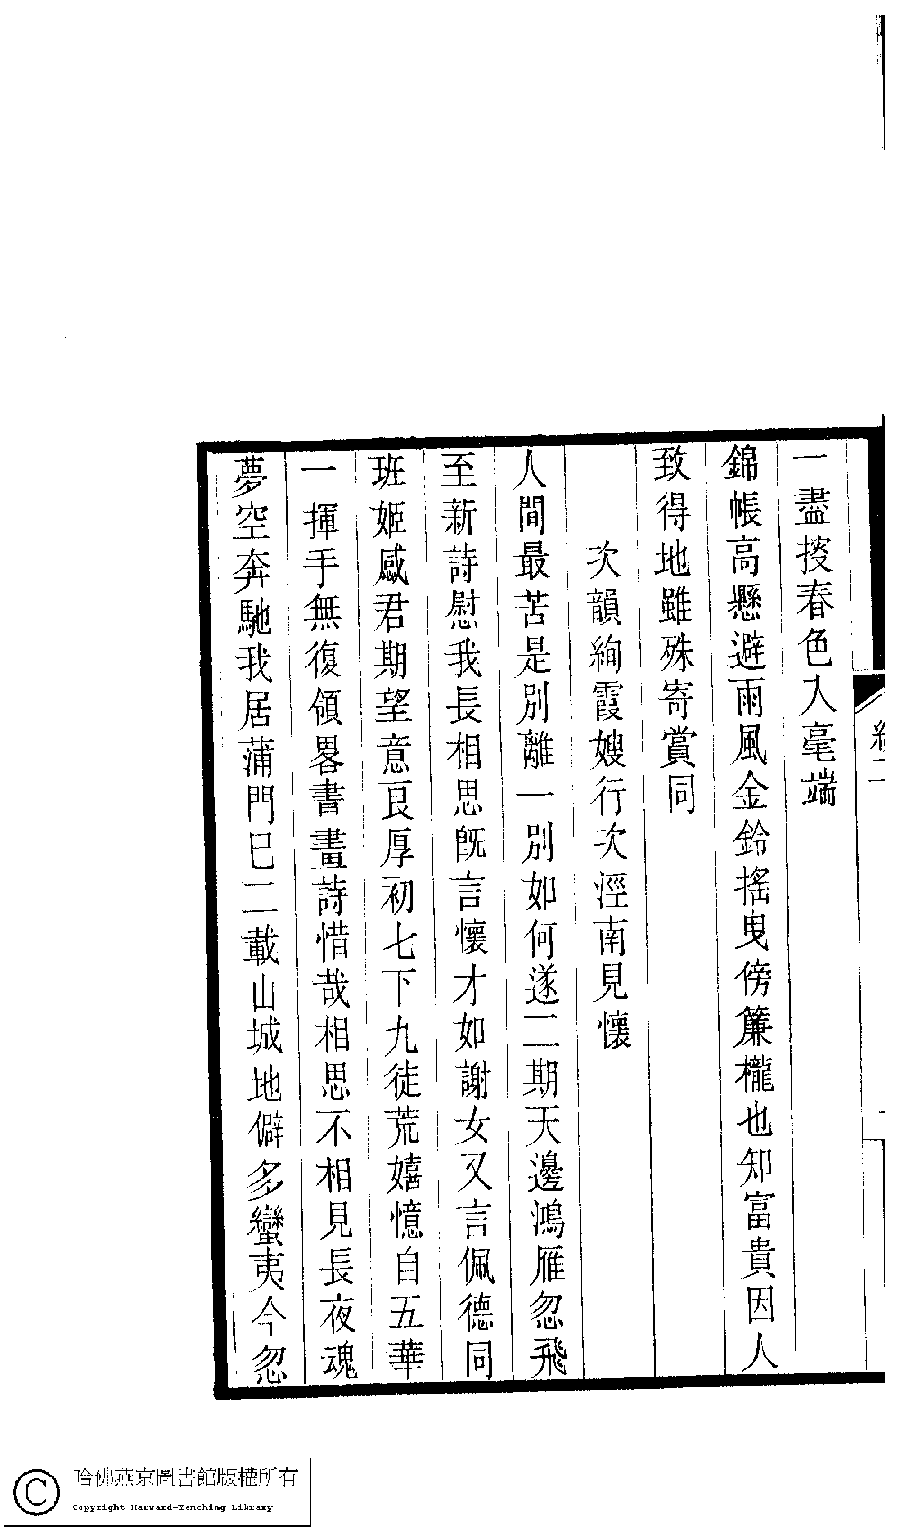 一盡挼春色入毫端
錦帳高懸避雨風金鈴搖曳傍簾櫳也知富貴因人
致得地雖殊寄賞同
次韻絢霞嫂行次涇南見懷
人間最苦是別離一別如何遂二期天邊鴻雁忽飛
至新詩慰我長相思旣言懷才如謝女又言佩德同
班姬感君期望意良厚初七下九徒荒嬉憶自五華
一揮手無復領畧書畫詩惜哉相思不相見長夜魂
夢空奔馳我居蒲門已二載山城地僻多蠻夷今忽
二
哈佛燕京圖書館版權所有
Copyright Harvard-Yenching Library